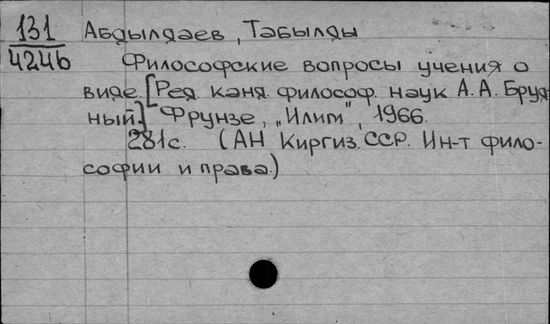 131 Абдылдаев, Табылды
4246 Философские вопросы учения о
виде. [Ред. канд. философ. наук А. А. Бруд
ный.] Фрунзе, „Илим", 1966.
281с. (АН Киргиз. ССР. Ин-т фило-
софии и права.)